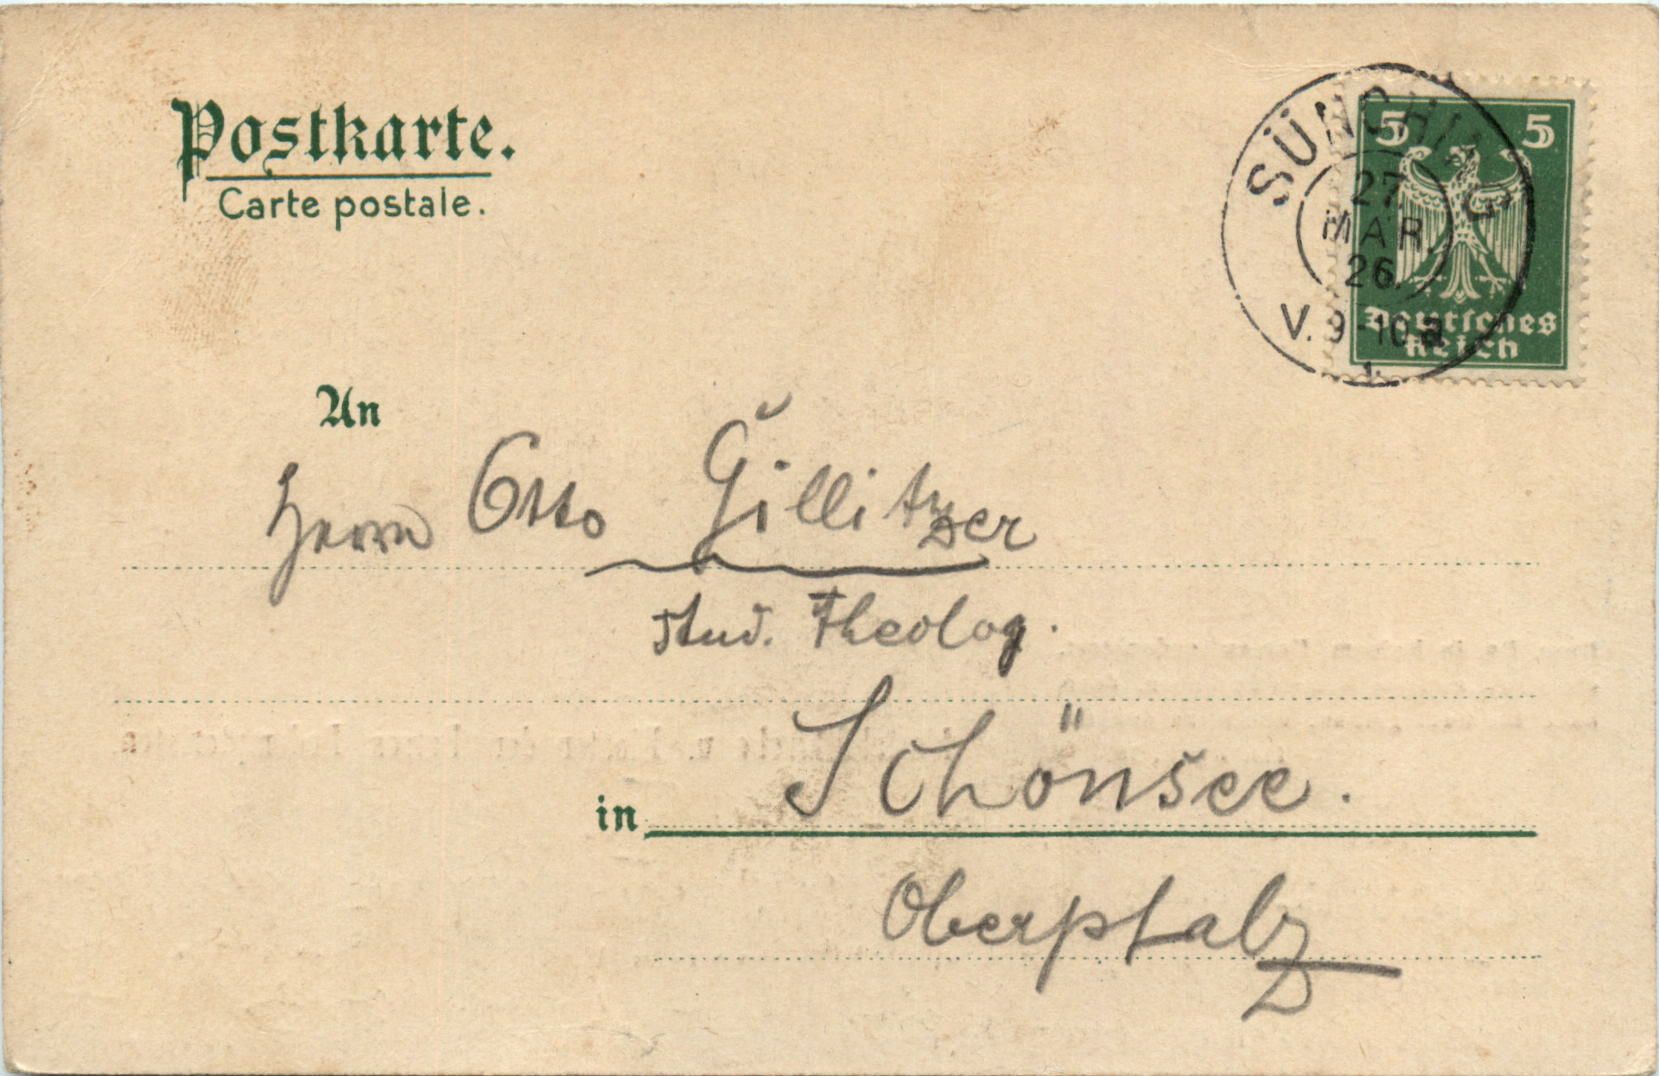 Postkarte.
Carte postale.
SÜNCHING
27.
MÄR.
26.
V. 9-10 a
5 5
Deutsches
Reich
An
Herrn Otto Gillitzer
stud. Theolog.
in Schönsee.
Oberpfalz